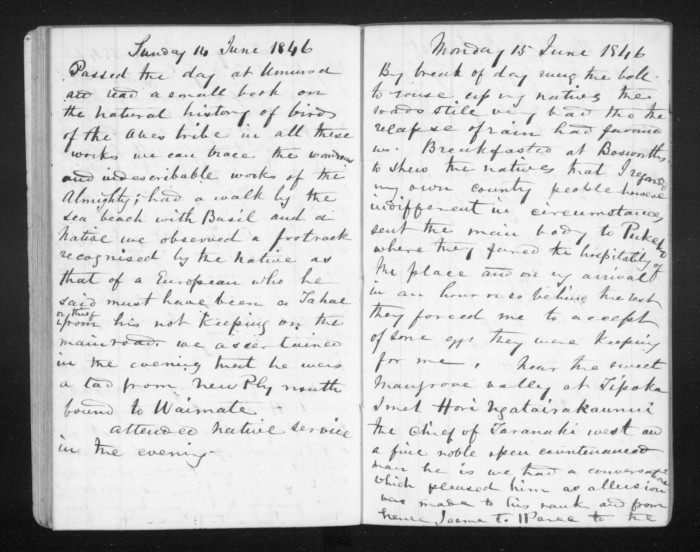 Sunday 14 June 1846
Passed the day at Umuroa
and read a small book on
the natural history of birds
of the Aves tribe in all these
works we can trace the wondrous
and undescribable works of the
Almighty; had a walk by the
sea beach with Basil and a
native we observed a footrack
recognised by the native as
that of a European who he
said must have been a Tahae
or thief
from his not keeping on the
main road. we ascertained
in the evening that he were
a lad from New Plymouth
bound to Waimate
attended native service
in the evening.
Monday 15 June 1846
By break of day rung the bell
to rouse up my natives the
roads still very bad tho the
relapse of rain had favoured
us. Breakfasted at Bosworths
to shew the natives that I regard
my own county people however
indifferent in circumstances
sent the main body to
where they fared the hospitality of
the place and on my arrival
in an hour or so behind the rest
they forced me to accept
of some eggs they were keeping
for me. Near the sweet
Mangrove valley at Tipoka
I met Hori Ngatairakaunui
the chief of Taranaki west and
a fine noble open countenanced
man he is we had a conversation
which pleased him as allusion
was made to his rank and from
hence I came to Warea to the